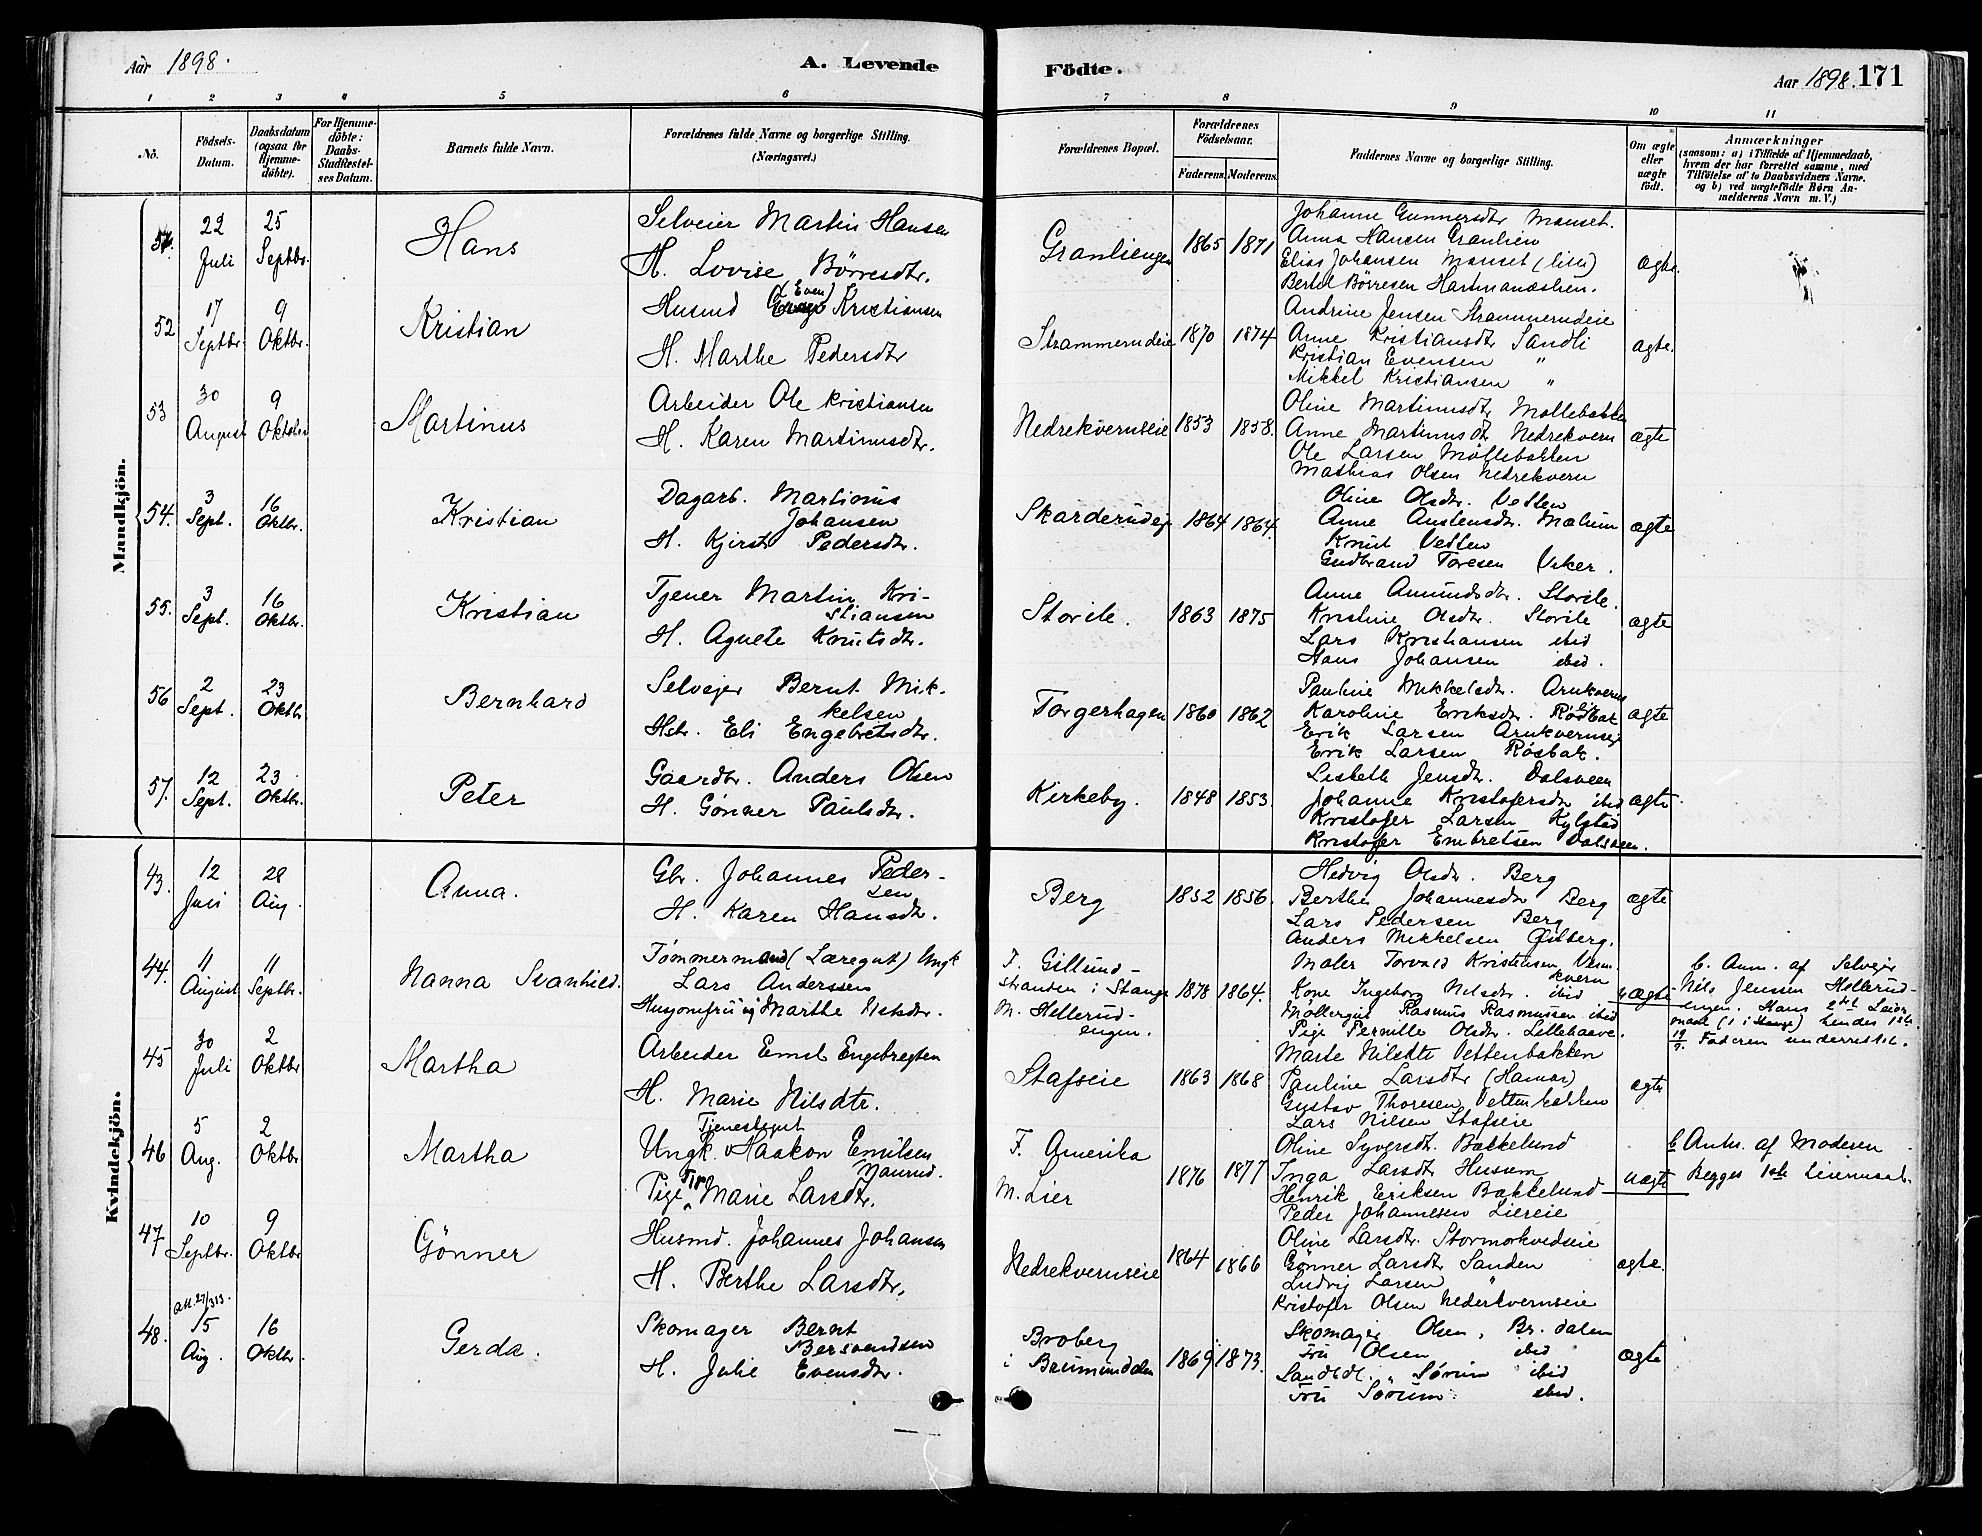 Aar 1898.
A. Levende
Födte.
Aar 1898. 171
1 2 3 4 5 6 7 8 9 10 11
No.
Födsels-Datum.
Daabsdatum (ogsaa for Hjemmedöbte).
For Hjemmedöbte: Daabs-Stadfæstelses Datum.
Barnets fulde Navn.
Forældrenes fulde Navne og borgerlige Stilling. (Næringsvei.)
Forældrenes Bopæl.
Forældrenes Födselsaar.
Faderens. Moderens.
Faddernes Navne og borgerlige Stilling.
Om ægte eller uægte født.
Anmærkninger
(saasom: a) i Tilfælde af Hjemmedaab,
hvem der har forrettet samme, med
Tilföielse af to Daabsvidners Navne.
og b) ved uægtefödte Børn An-
melderens Navn m. V.)
Mandkjön.
51. 22 Juli 25 Septbr. Hans
Selveier Martin Hansen
H. Lovise Börresdtr.
Granliengen 1865 1871
Johanne Gunnersdtr Manset.
Anna Hansen Granlien
Elias Johansen Manset (lille)
Bertel Börresen Hartmandslien.
ægte.
52 17 Septbr. 9 Oktbr. Kristian
Husmd (Even) Kristiansen
H. Marthe Pedersdtr
Strammerudeie 1870 1874
Andrine Jensen Strammerudeie
Anne Kristiansdtr Sandli
Kristian Evensen "
Mikkel Kristiansen "
ægte.
53 30 August 9 Oktober Martinus
Arbeider Ole Kristiansen
H. Karen Martinusdtr.
Nedrekvernseie 1853 1858.
Oline Martinusdtr Möllebakken
Anne Martinusdtr Nedrekvern
Ole Larsen Möllebakken
Mathias Olsen Nedrekvern
ægte
54. 3 Sept. 16 Oktbr. Kristian
Dagarb. Martinus
Johansen
H. Kjersti Pedersdtr.
Skarderudeje 1864 1864.
Oline Olsdtr. Vetten
Anne Austensdtr. Mælum
Knut Vetten
Gudbrand Toresen Veker.
ægte
55. 3 Sept. 16 Oktbr. Kristian
Tjener Martin Kri-
stiansen
H. Agnete Knutsdtr.
Storile. 1863 1875
Anne Amundsdtr. Storile.
Kristine Olsdtr. Storile
Lars Kristiansen ibid
Hans Johansen ibid.
ægte
56 2 Sept. 23 Oktbr Bernhard
Selvejer Bernt Mik-
kelsen
Hstr. Eli Engebretsdtr.
Torgerhagen 1860 1862
Pauline Mikkelsdtr. Arnkverns
Karoline Eriksdtr. Røsbak
Erik Larsen Arnkvernseje
Erik Larsen Røsbak.
ægte
57. 12 Sept. 23 Oktbr. Peter
Gaardbr. Anders Olsen
H. Gönner Paulsdtr.
Kirkeby. 1848 1853
Lisbeth Jensdtr. Dalsveen
Johanne Kristofersdtr ibid
Kristofer Larsen Kylstad
Kristofer Embretsen Dalsveen.
ægte.
Kvindekjön.
43. 12 Juli 28 Aug. Anna.
Gbr. Johannes Peder-
sen
H. Karen Hansdtr.
Berg 1852 1856.
Hedvig Olsdtr. Berg
Berthe Johannesdtr Berg
Lars Pedersen Berg
Anders Mikkelsen Gilberg.
ægte
44. 11 August 11 Septbr. Nanna Svanhild.
Tømmermand (Læregut) Ungk
Lars Anderssen
Husjomfru Marthe Nilsdtr.
F. Gillund-
stranden i Stange
M. Hellerud-
engen.
1878 1864.
Maler Torvald Kristensen Vesm
kvern
Kone Ingeborg Nilsdtr. ibid
Møllergut Rasmus Rasmussen ibid
Pige Pernille Olsdtr. Lillehaave.
uægte
b. Anm. af Selvejer
Nils Jensen Hellerud-
engen. Hans 2det Leier-
maal (1 i Stange) hendes 1ste.
19/9. Faderen underrettet.
45 30 Juli 2 Oktbr Martha
Arbeider Emil Engebregtsen
H. Marie Nilsdtr.
Stafseie 1863 1868
Marte Nilsdtr Vettenbakken
Pauline Larsdtr (Hamar)
Gustav Thoresen Vettenbakken
Lars Nilsen Stafseie
ægte
46 5 Aug. 2 Oktbr Martha
Tjenestegut
Ungk. Haakon Emilsen
Naurud.
Pige Marie Larsdtr.
F. Amerika
M. Lier
1876 1877
Oline Syversdt. Bækkelund
Inga Larsdtr Hussem
Henrik Eriksen Bækkelund
Peder Johannesen Liereie
uægte
b Anm. af Moderen
Begges 1ste Leiermaal.
47 10 Septbr. 9 Oktbr Gönner
Husmd. Johannes Johansen
H. Berthe Larsdtr.
Nedrekvernseie 1864 1866
Oline Larsdtr. Stormorkvedseie
Gönner Larsdtr Sanden
Ludvig Larsen "
Kristofer Olsen Nederkvernseie
ægte.
48. att. 27/313. 15 Aug. 16 Oktbr. Gerda.
Skomager Bernt
Bersvendsen
H. Julie Evensdtr.
Broberg
i Brumunddalen
1869 1873.
Skomager Olsen, Br.dalen
Fru Olsen ibid
Landhdl. Sörum ibid
Fru Sörum ibid.
ægte